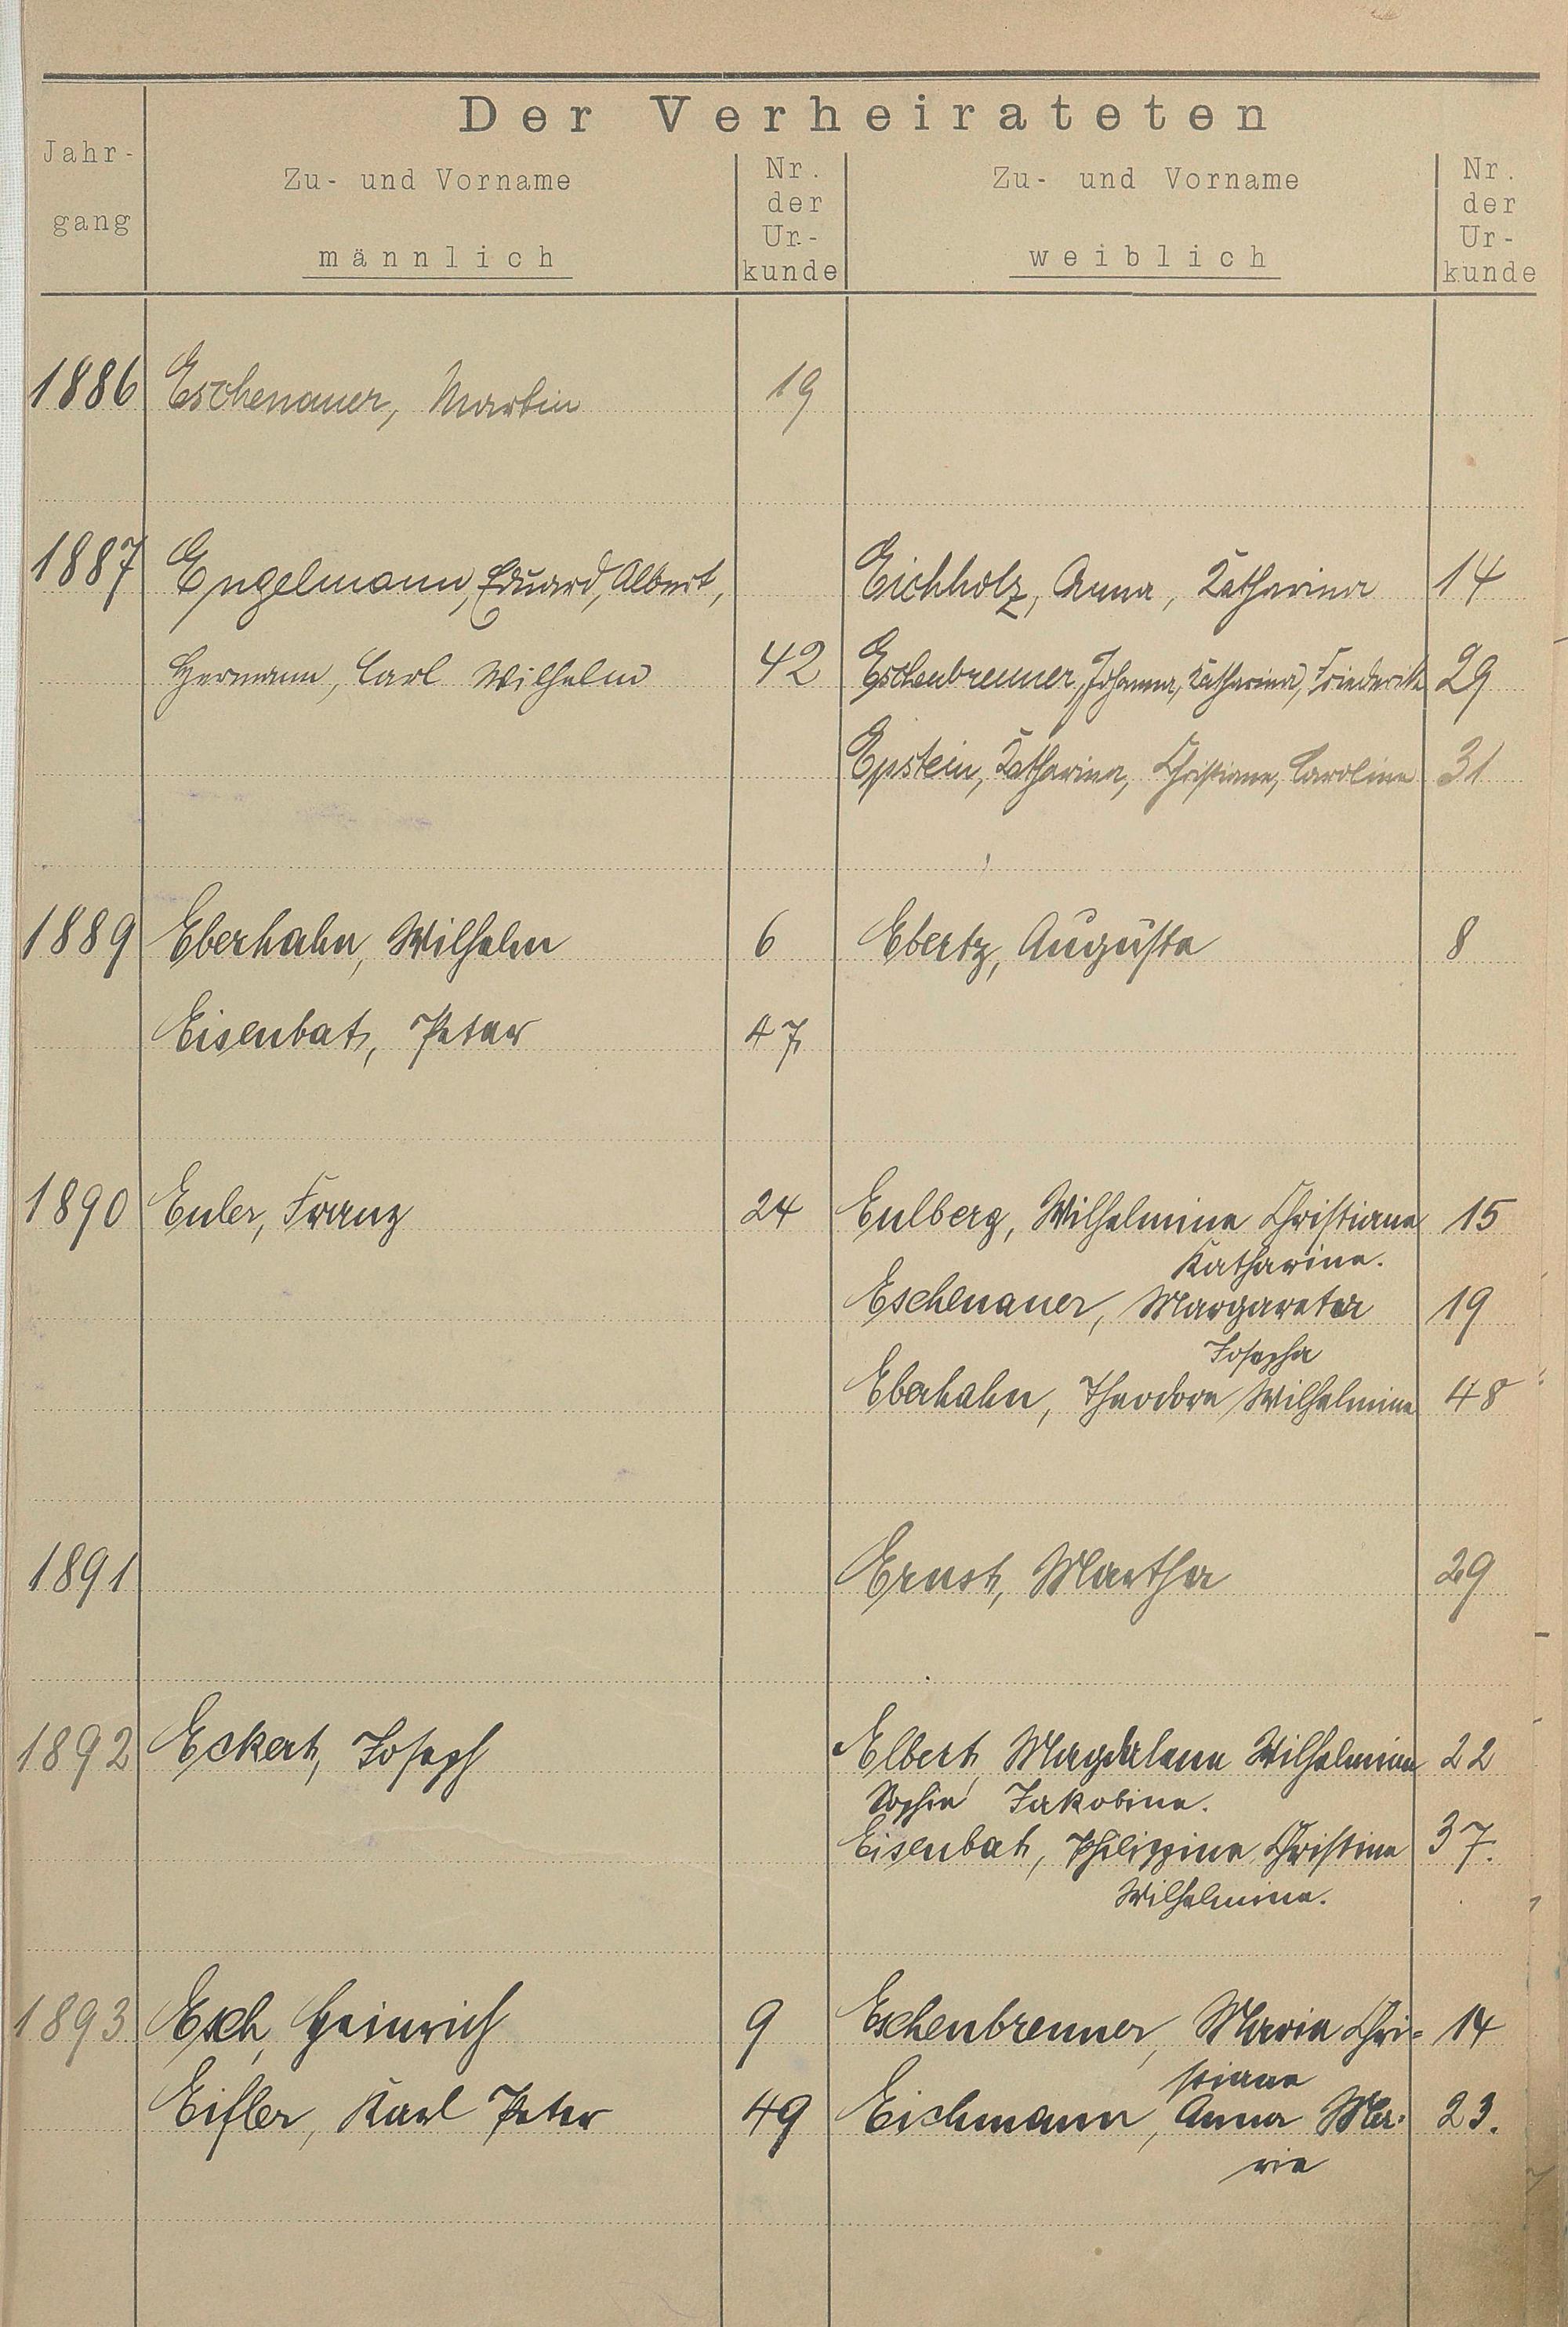 Der Verheirateten
Jahr-
gang
Zu- und Vorname
männlich
Nr.
der
Ur-
kunde
Zu- und Vorname
weiblich
Nr.
der
Ur-
kunde
1886 Eschenauer, Martin 19
1887 Engelmann, Eduard, Albert, Eichholz, Anna, Katharina 14
Hermann, Carl Wilhelm 42 Eschenbrenner, Johanna, Katharina, Friederike 29
Epstein, Katharina, Christiane, Caroline 31
1889 Eberhahn, Wilhelm 6 Ebertz, Auguste 8
Eisenbat, Peter 47
1890 Euler, Franz 24 Eulberg, Wilhelmine Christiane 15
Katharine.
Eschenauer, Margareta 19
Josepha
Eberhahn, Theodore Wilhelmine 48
1891 Ernst, Martha 29
1892 Eckert, Joseph Elbert, Magdalena Wilhelmine 22
Sophie Jakobine.
Eisenbat, Philippine Christine 37.
Wilhelmine.
1893 Esch, Heinrich 9 Eschenbrenner, Maria Chri- 14
stiane
Eifler, Karl Peter 49 Eichmann, Anna Ma- 23.
rie